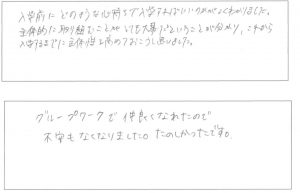 入学前にどのような心持ちで入学すればいいのかがよくわかりました。
主体的に取り組むことがとても大事だということが分かり、これから
入学するまでに主体性を高めておこうと思いました。
グループワークで仲良くなれたので
不安もなくなりました。たのしかったです。